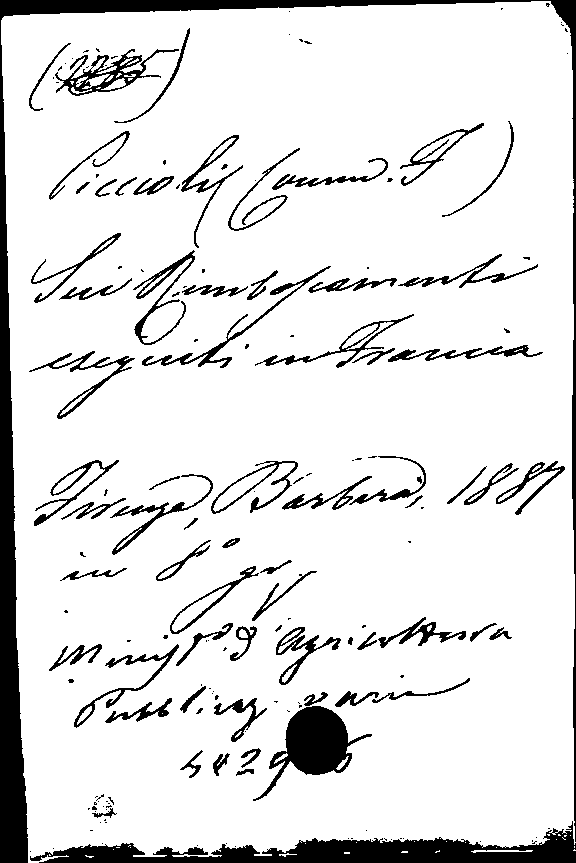 Piccioli (Comm. F)
Sui Rimboscamenti
eseguiti in Francia
Firenze, Barbera, 1887
in 8° gr.
V
Minist° d'Agricoltura
Pubblicaz varie